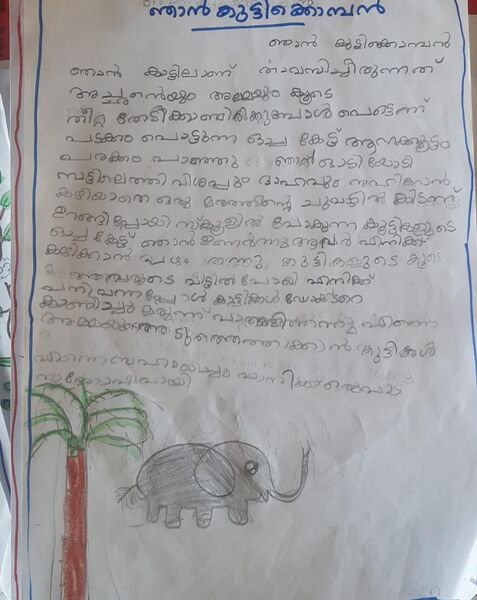 ഞാൻ കുട്ടിക്കൊമ്പൻ
ഞാൻ കുട്ടിക്കൊമ്പൻ
ഞാൻ കാട്ടിലാണ് താമസിച്ചിരുന്നത്
അച്ഛനെയും അമ്മയും കൂടെ
തീറ്റ തേടിക്കൊണ്ടിരിക്കുമ്പോൾ പെട്ടെന്ന്
പടക്കം പൊട്ടുന്ന ഒച്ച കേട്ട് ആനക്കൂട്ടം
പരക്കം പാഞ്ഞു ഞാൻ ഓടിയോടി
നാട്ടിലെത്തി വിശപ്പും ദാഹവും സഹിക്കാൻ
കഴിയാതെ ഒരു മരത്തിന്റെ ചുവട്ടിൽ കിടന്ന്
ഉറങ്ങിപ്പോയി സ്കൂളിൽ പോകുന്ന കുട്ടികളുടെ
ഒച്ച കേട്ട് ഞാൻ ഉണർന്നു അവർ എനിക്ക്
കഴിക്കാൻ പഴം തന്നു. കുട്ടികളുടെ കൂടെ
വീട്ടിൽ പോയി എനിക്ക്
പനി വന്നപ്പോൾ കുട്ടികൾ ഡോക്ടറെ
കാണിച്ചു മരുന്ന് എന്നെ
അമ്മയുടെ അടുത്തെത്തിക്കാൻ കുട്ടികൾ
എന്നെ സഹായിച്ചു